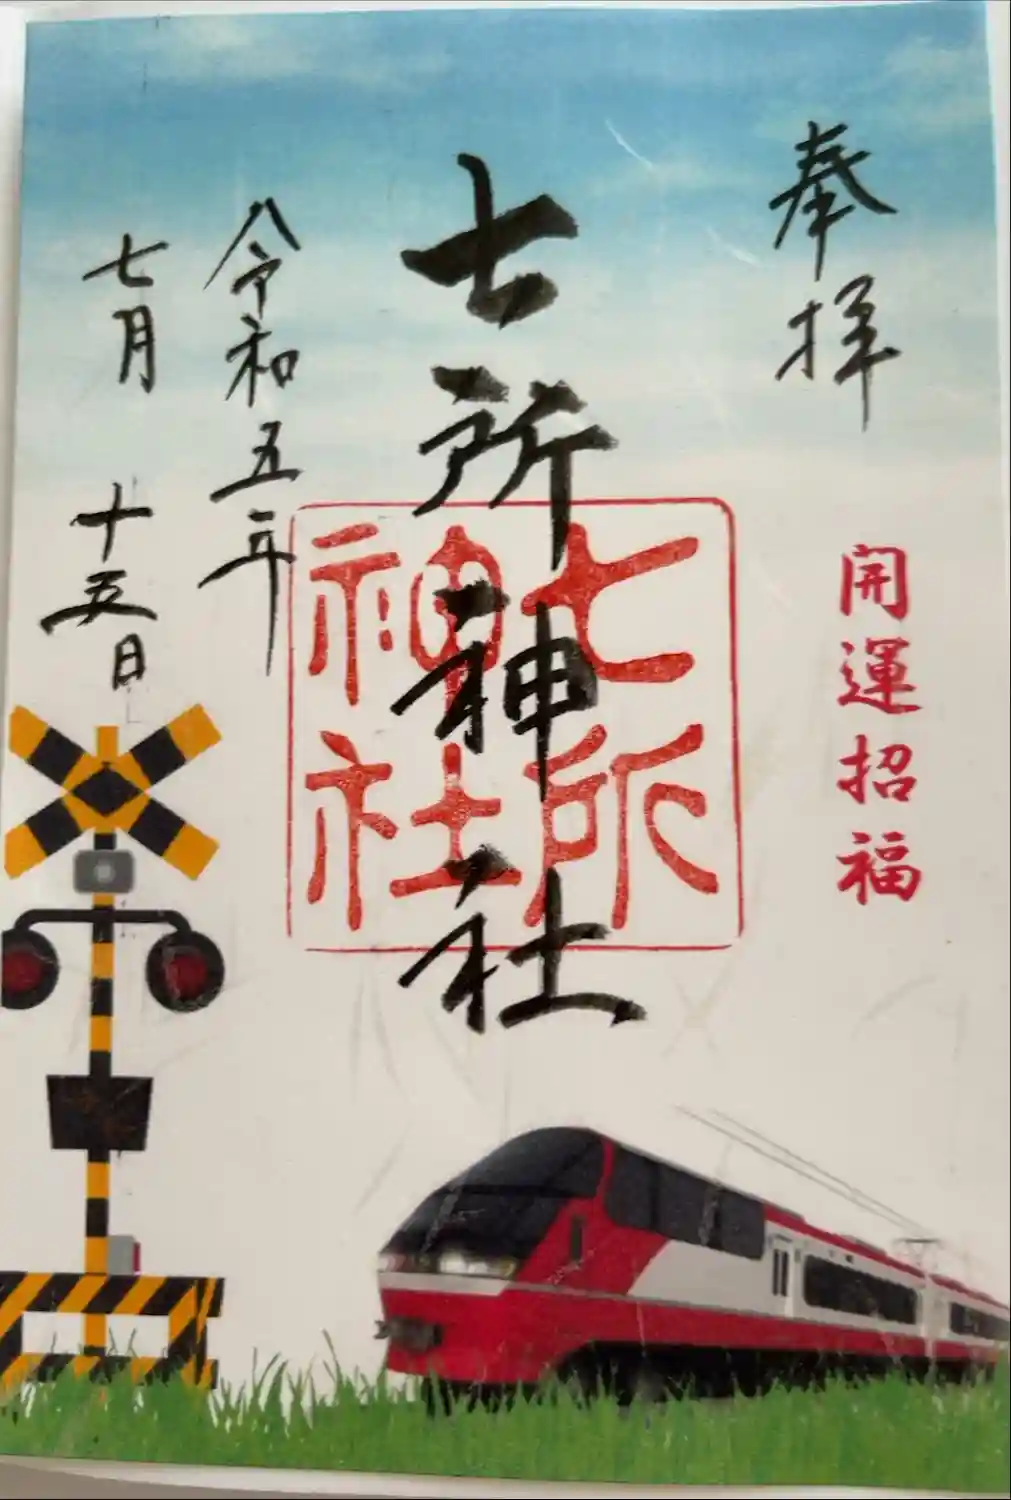 奉拝
開運招福
七所神社
七所
神社
令和五年
七月十五日